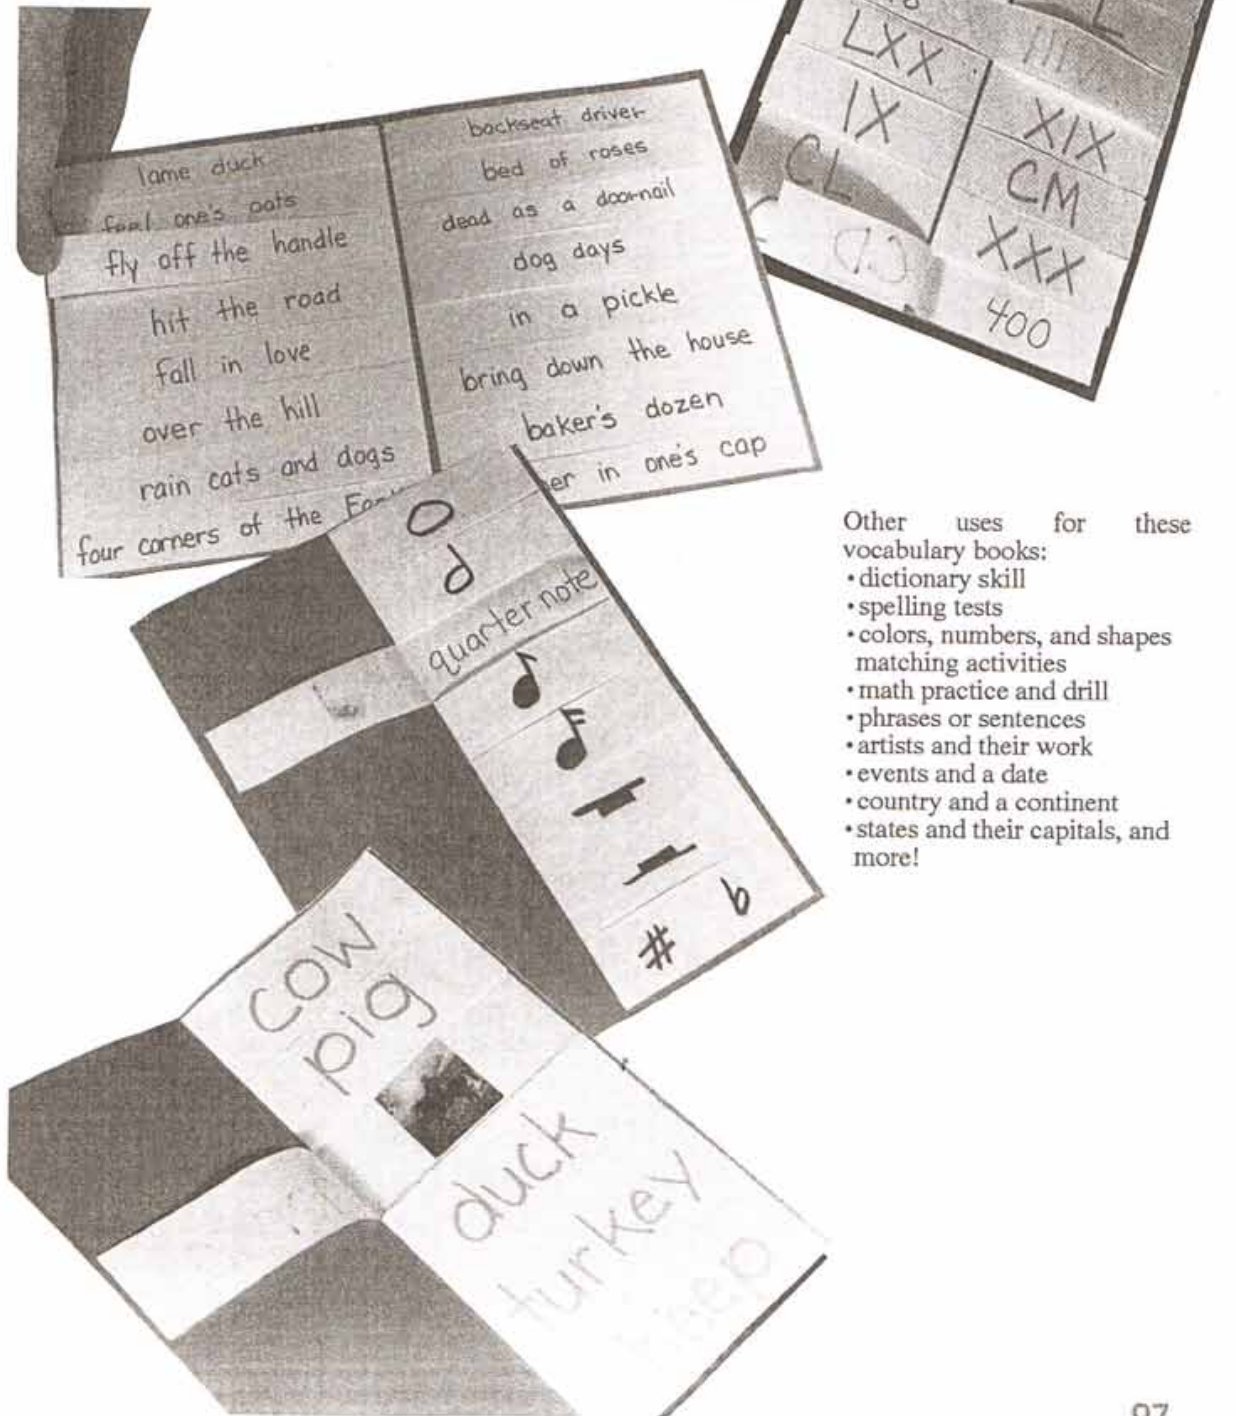 LXX
IX
CL
XIX
CM
XXX
400
lame duck
feel one's oats
fly off the handle
hit the road
fall in love
over the hill
rain cats and dogs
four corners of the
backseat driver
bed of roses
dead as a doornail
dog days
in a pickle
bring down the house
baker's dozen
in one's cap
quarter note
#
b
Other uses for these
vocabulary books:
• dictionary skill
• spelling tests
• colors, numbers, and shapes
matching activities
• math practice and drill
• phrases or sentences
• artists and their work
• events and a date
• country and a continent
• states and their capitals, and
more!
cow
pig
duck
turkey